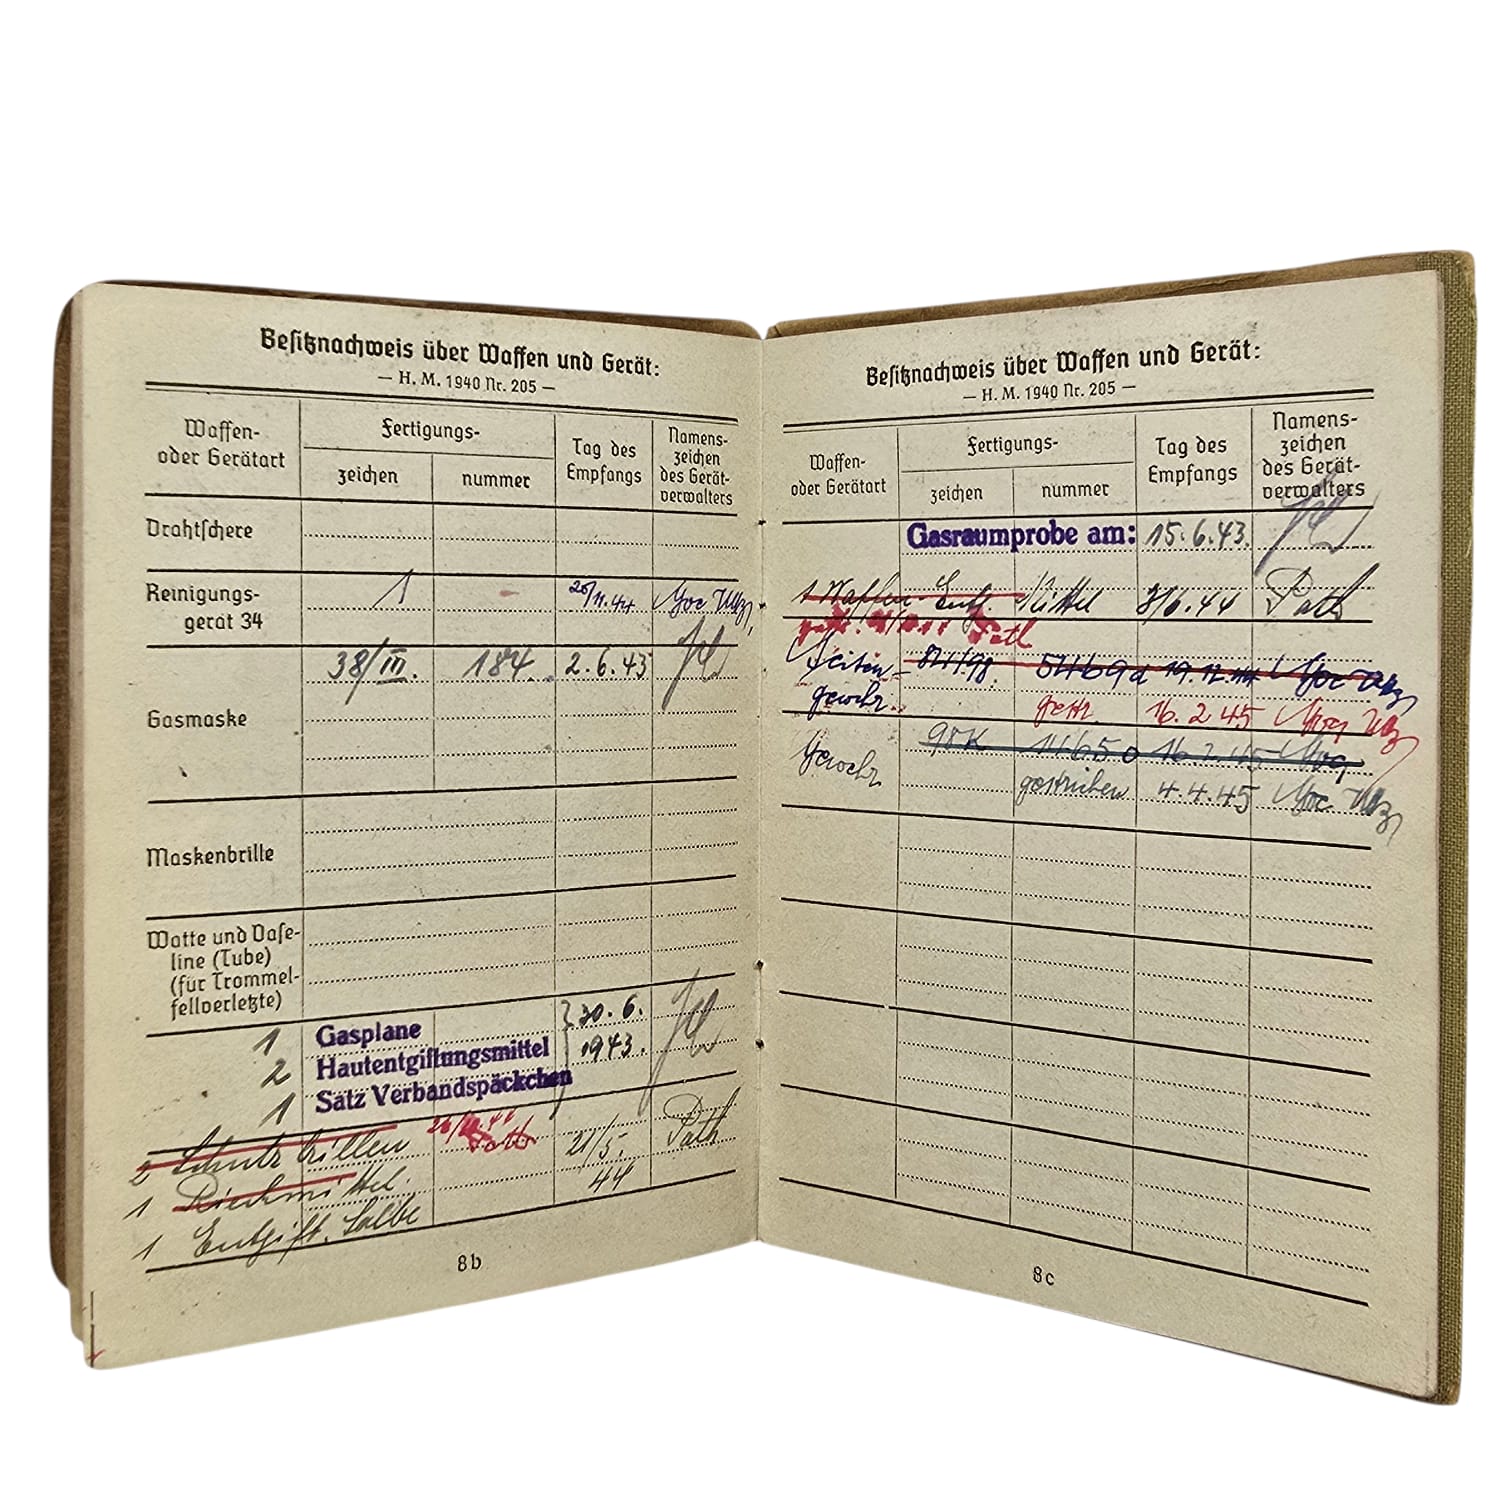 Besitznachweis über Waffen und Gerät:
— H. M. 1940 Nr. 205 —
Waffen- oder Gerätart
Fertigungs-
zeichen
nummer
Tag des Empfangs
Namens-
zeichen
des Gerät-
verwalters
Drahtschere
Reinigungs-
gerät 34
1 -
Gasmaske
38/III. 184. 2.6.43
Maskenbrille
Watte und Vase-
line (Tube)
(für Trommel-
fellverletzte)
1 Gasplane 30.6.
2 Hautentgiftungsmittel 1943.
1 Satz Verbandspäckchen
2 Schutzbrillen 21/5. Path
1 Riechmittel. 44
1 Entgift. Salbe
8b
Besitznachweis über Waffen und Gerät:
— H. M. 1940 Nr. 205 —
Waffen-
oder Gerätart
Fertigungs-
zeichen
nummer
Tag des
Empfangs
Namens-
zeichen
des Gerät-
verwalters
Gasraumprobe am: 15.6.43.
1 Waffen-Entg. Mittel 3/6.44 Path
Seiten-
gewehr. gestr. 16.2.45
Gewehr
gestrichen 4.4.45
8c